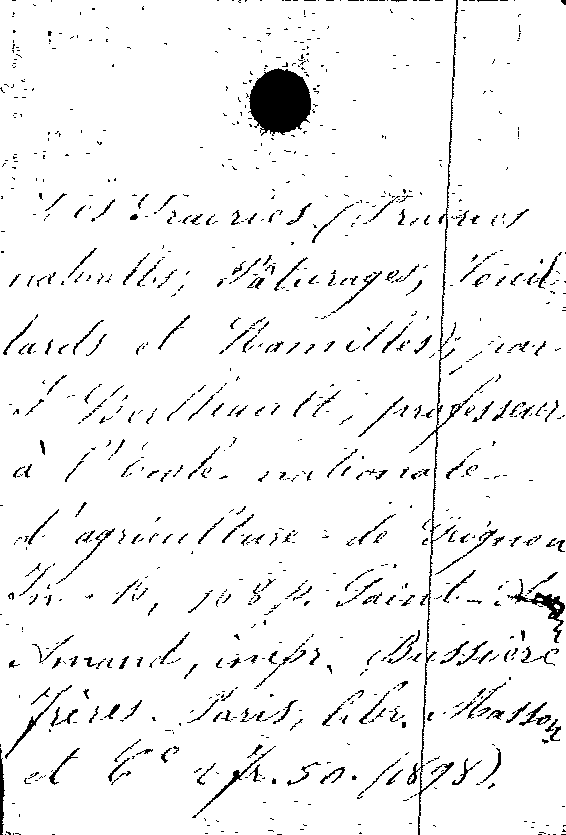 Les Prairies (Prairies
naturelles; Pâturages; Feuil-
lards et Ramilles); par
F Berthault, professeur
à l'École nationale
d'agriculture de Grignon
In-16, 168 p. Saint-
Amand, impr. Bussière
frères. Paris, libr. Masson
et Cᵉ 2 fr. 50. (1898).